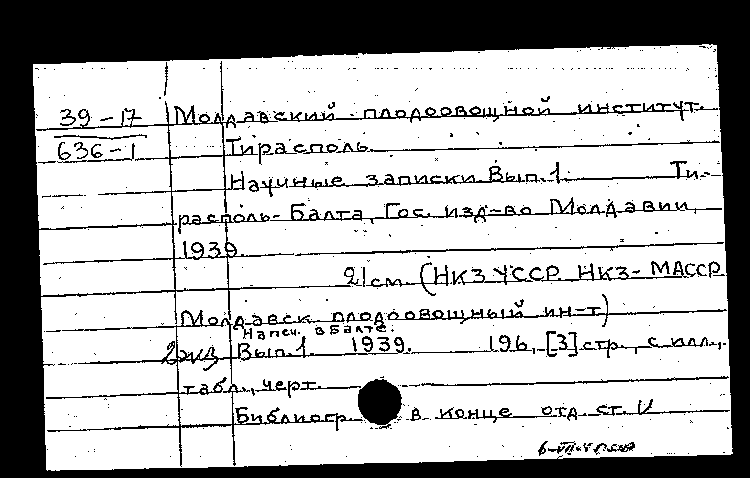 39-17 Молдавский плодоовощной институт.
636-1 Тирасполь.
Научные записки Вып.1. Ти-
располь-Балта, Гос. изд-во Молдавии,
1939.
21 см. (НКЗ УССР. НКЗ-МАССР
Молдавск. плодоовощный ин-т)
Напеч. в Балте.
2 экз Вып.1. 1939. 196, [3] стр., с илл.,
табл., черт.
Библиогр. в конце отд. ст.